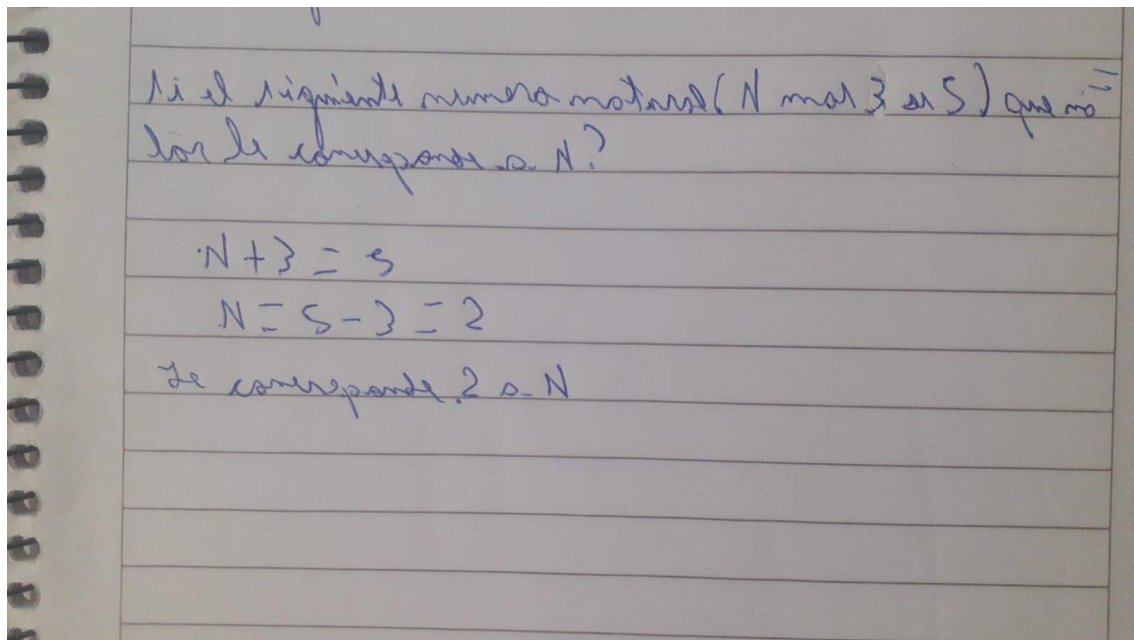 si el siguiente numero natural (N mas 3 es 5) que va=
lor le corresponde a N?
N+3 = 5
N = 5-3 = 2
Le corresponde 2 a N